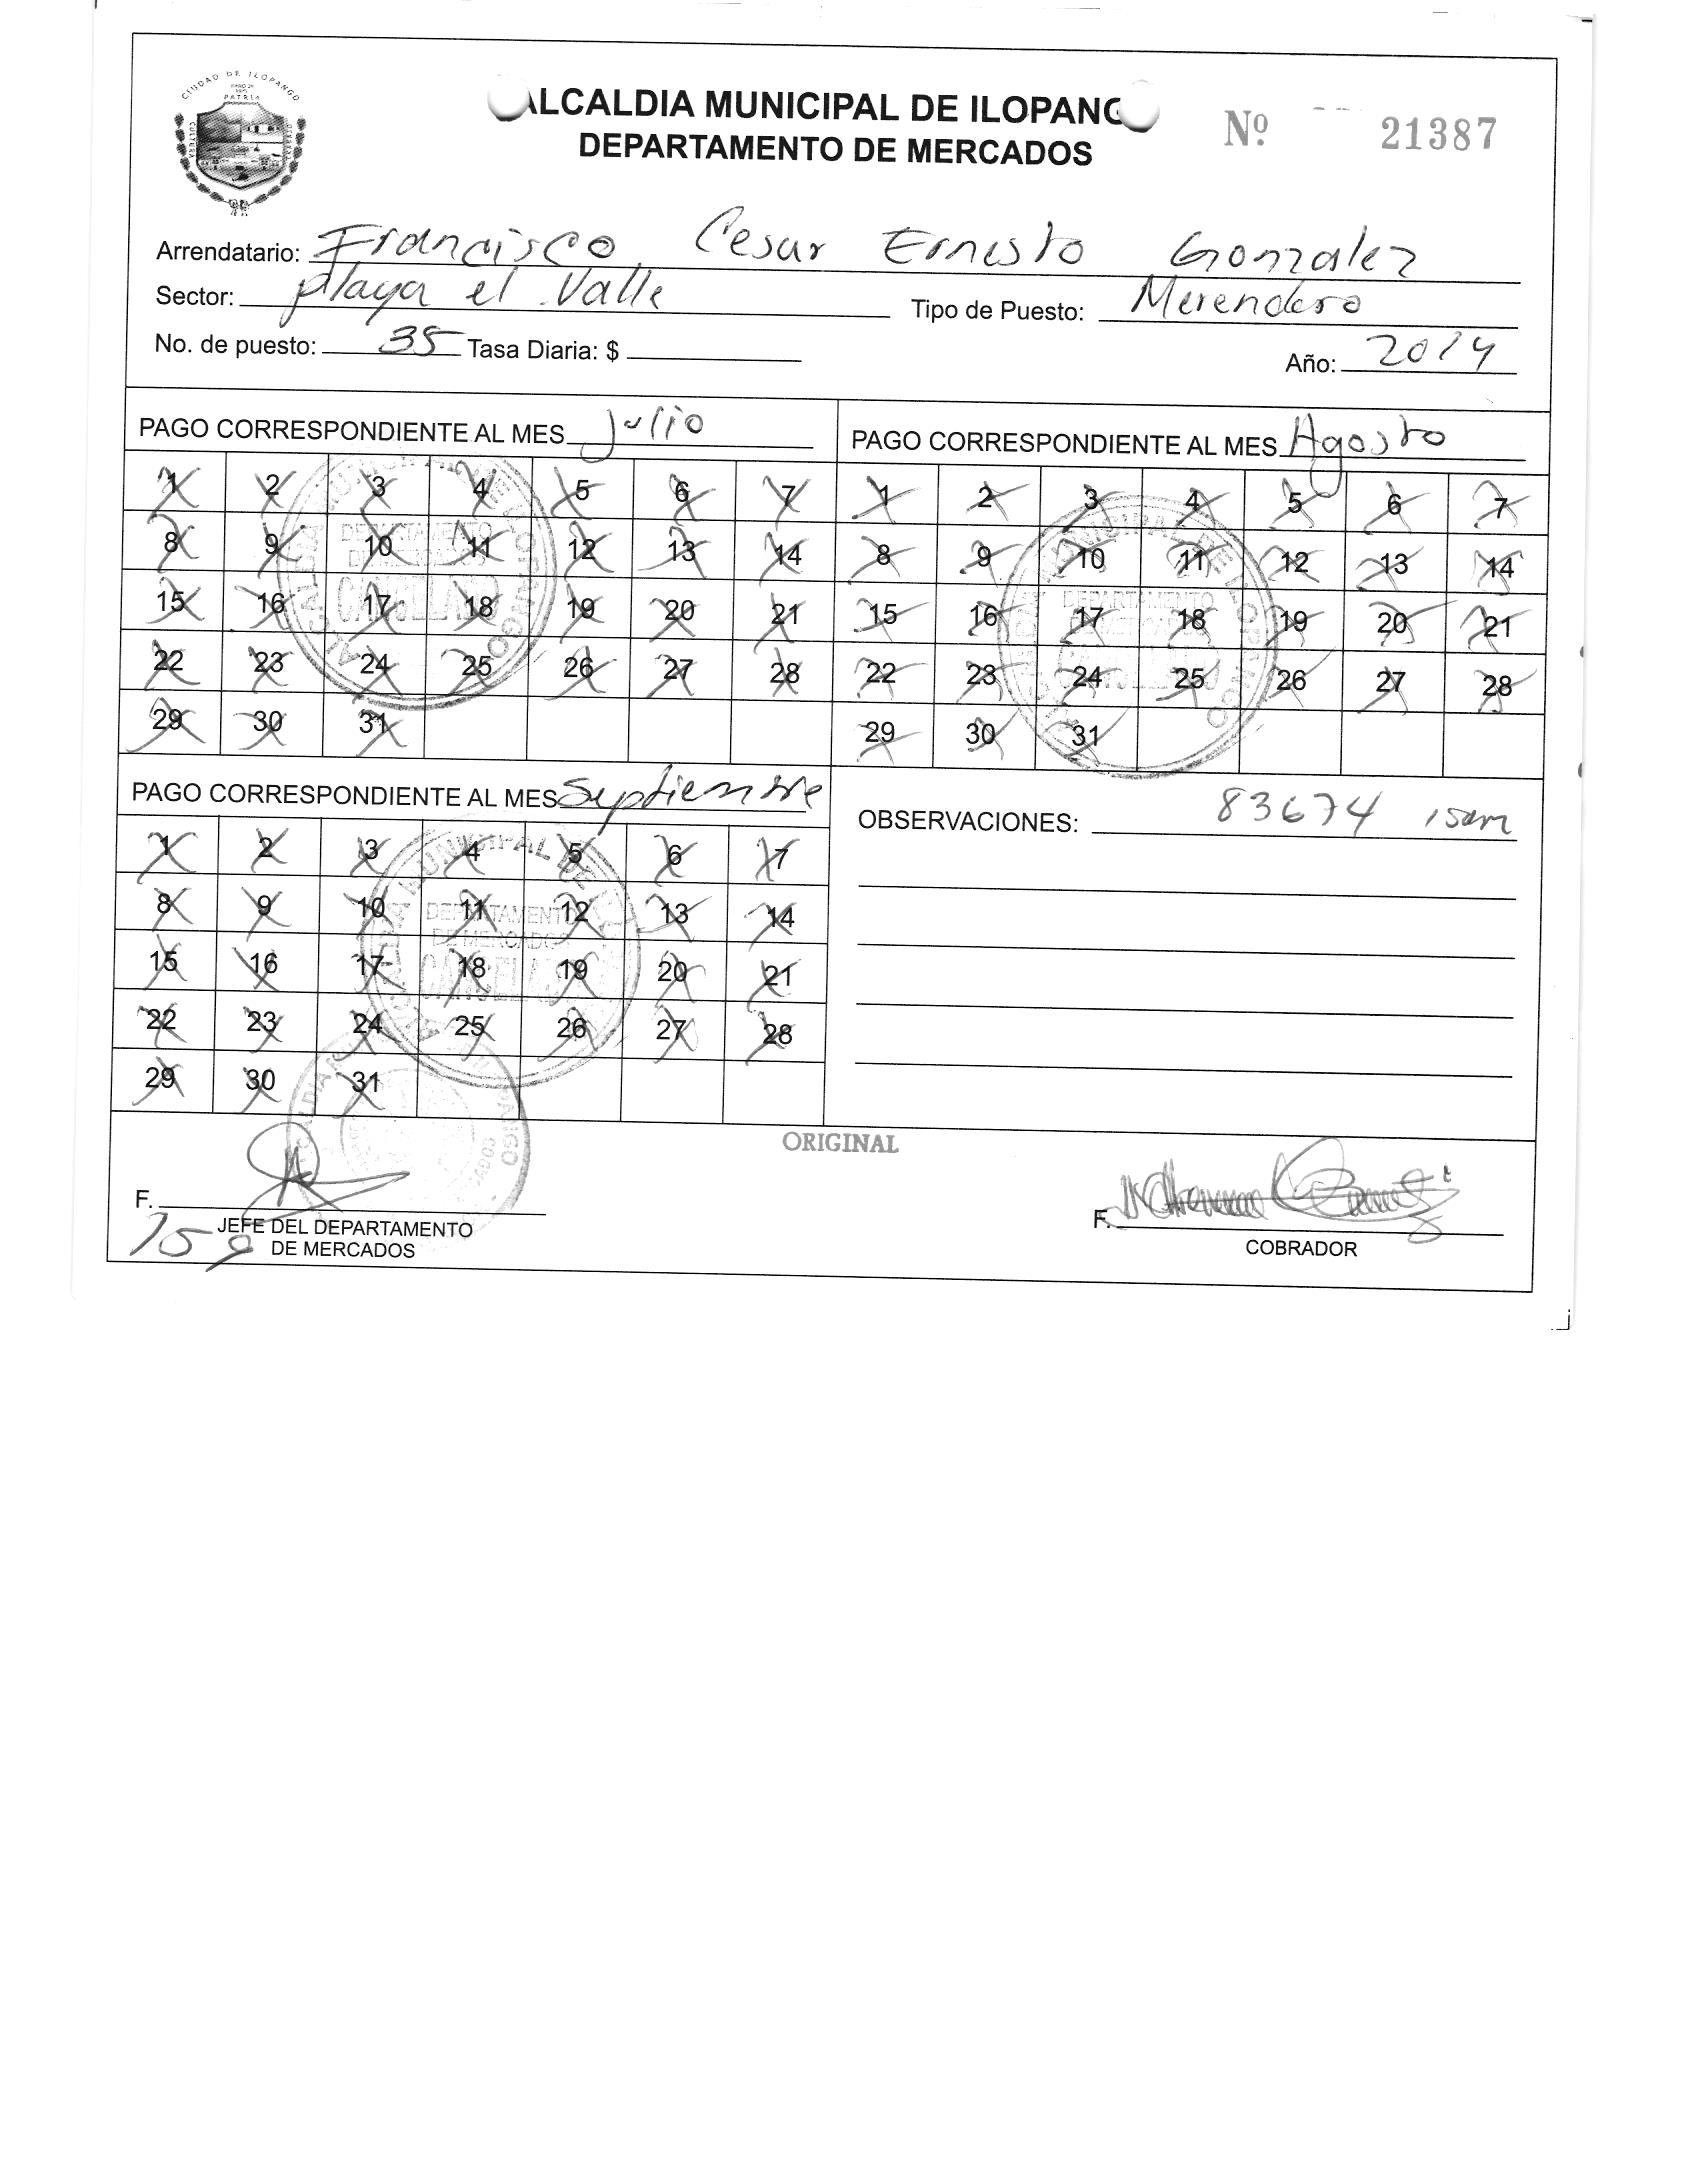 CIUDAD DE ILOPANGO
PATRIA
CULTURA
ALCALDIA MUNICIPAL DE ILOPANG
DEPARTAMENTO DE MERCADOS
Nº 21387
Arrendatario: Francisco Cesar Ernesto Gonzalez
Sector: playa el Valle Tipo de Puesto: Merendero
No. de puesto: 35 Tasa Diaria: $ Año: 2014
PAGO CORRESPONDIENTE AL MES Julio
1 2 3 4 5 6 7
8 9 10 11 12 13 14
15 16 17 18 19 20 21
22 23 24 25 26 27 28
29 30 31
DEPARTAMENTO
DE MERCADOS
CANCELADO
PAGO CORRESPONDIENTE AL MES Agosto
1 2 3 4 5 6 7
8 9 10 11 12 13 14
15 16 17 18 19 20 21
22 23 24 25 26 27 28
29 30 31
MUNICIPAL DE ILOPANGO
DEPARTAMENTO
PAGO CORRESPONDIENTE AL MES Septiembre
1 2 3 4 5 6 7
8 9 10 11 12 13 14
15 16 17 18 19 20 21
22 23 24 25 26 27 28
29 30 31
MUNICIPAL DE
DEPARTAMENTO
DE MERCADOS
CANCELADO
OBSERVACIONES: 83674 isam
ORIGINAL
F.
JEFE DEL DEPARTAMENTO
DE MERCADOS
F.
COBRADOR